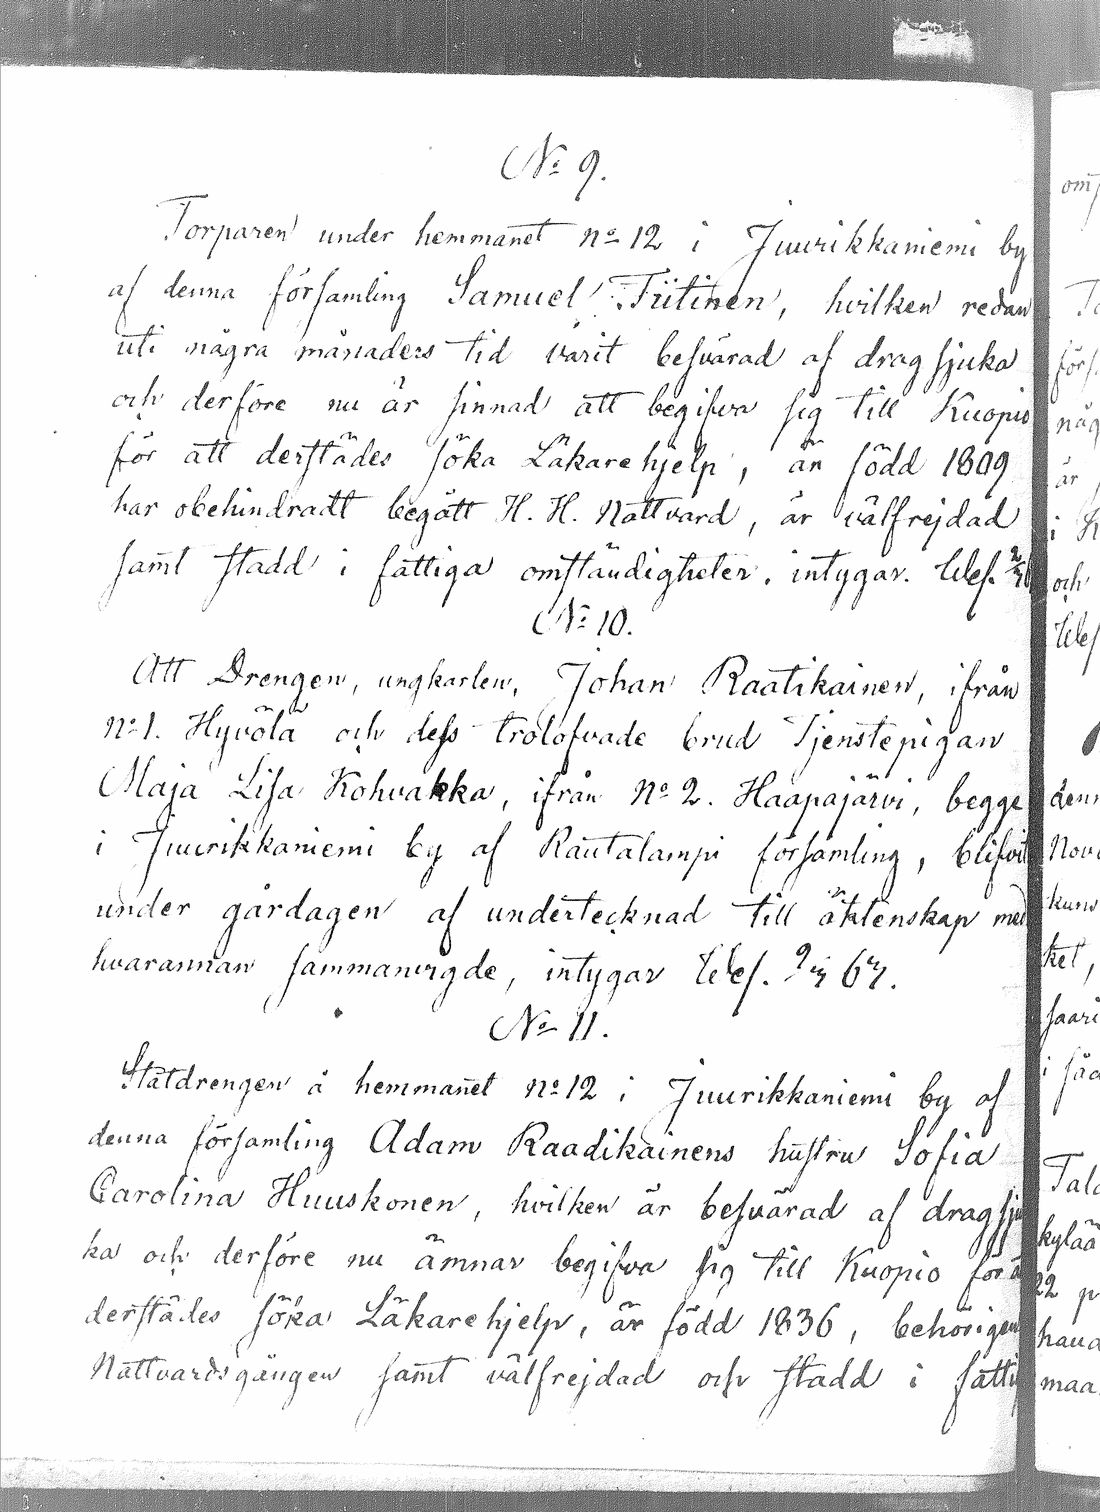 No 9.
Torparen under hemmanet no 12 i Juurikkaniemi by
af denna församling Samuel Tiitinen, hvilken redan
uti några månaders tid varit besvärad af dragsjuka
och derföre nu är sinnad att begifva sig till Kuopio
för att derstädes söka Läkarehjelp, är född 1809
har obehindradt begått H. H. Nattvard, är välfrejdad
samt stadd i fattiga omständigheter, intygar.
No 10.
Att Drengen, ungkarlen, Johan Raatikainen, ifrån
no 1. Hyvölä och dess trolofvade brud Tjenstepigan
Maja Lisa Kohvakka, ifrån No 2. Haapajärvi, begge
i Juurikkaniemi by af Rautalampi församling, blifvit
under gårdagen af undertecknad till äktenskap med
hvarannan sammanvigde, intygar
No 11.
Statdrengen å hemmanet no 12 i Juurikkaniemi by af
denna församling Adam Raadikainens hustru Sofia
Carolina Huuskonen, hvilken är besvärad af dragsju
ka och derföre nu ämnar begifva sig till Kuopio för
derstädes söka Läkarehjelp, är född 1836, behörigen
Nattvardsgången samt välfrejdad och stadd i fatti